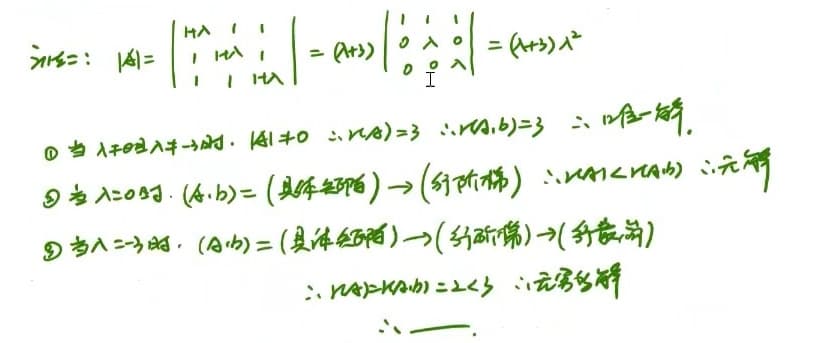 方法二: |A| = | 1+λ 1 1 | = (λ+3) | 1 1 1 | = (λ+3) λ²
| 1 1+λ 1 | | 0 λ 0 |
| 1 1 1+λ | | 0 0 λ |
① 当 λ≠0且λ≠-3时. |A|≠0 ∴ r(A)=3 ∴ r(A,b)=3 ∴ 唯一解.
② 当 λ=0时. (A,b) = (具体矩阵) → (行阶梯) ∴ r(A)<r(A,b) ∴ 无解
③ 当 λ=-3时. (A,b) = (具体矩阵) → (行阶梯) → (行最简)
∴ r(A)=r(A,b)=2<3 ∴ 无穷多解
∴ ——.